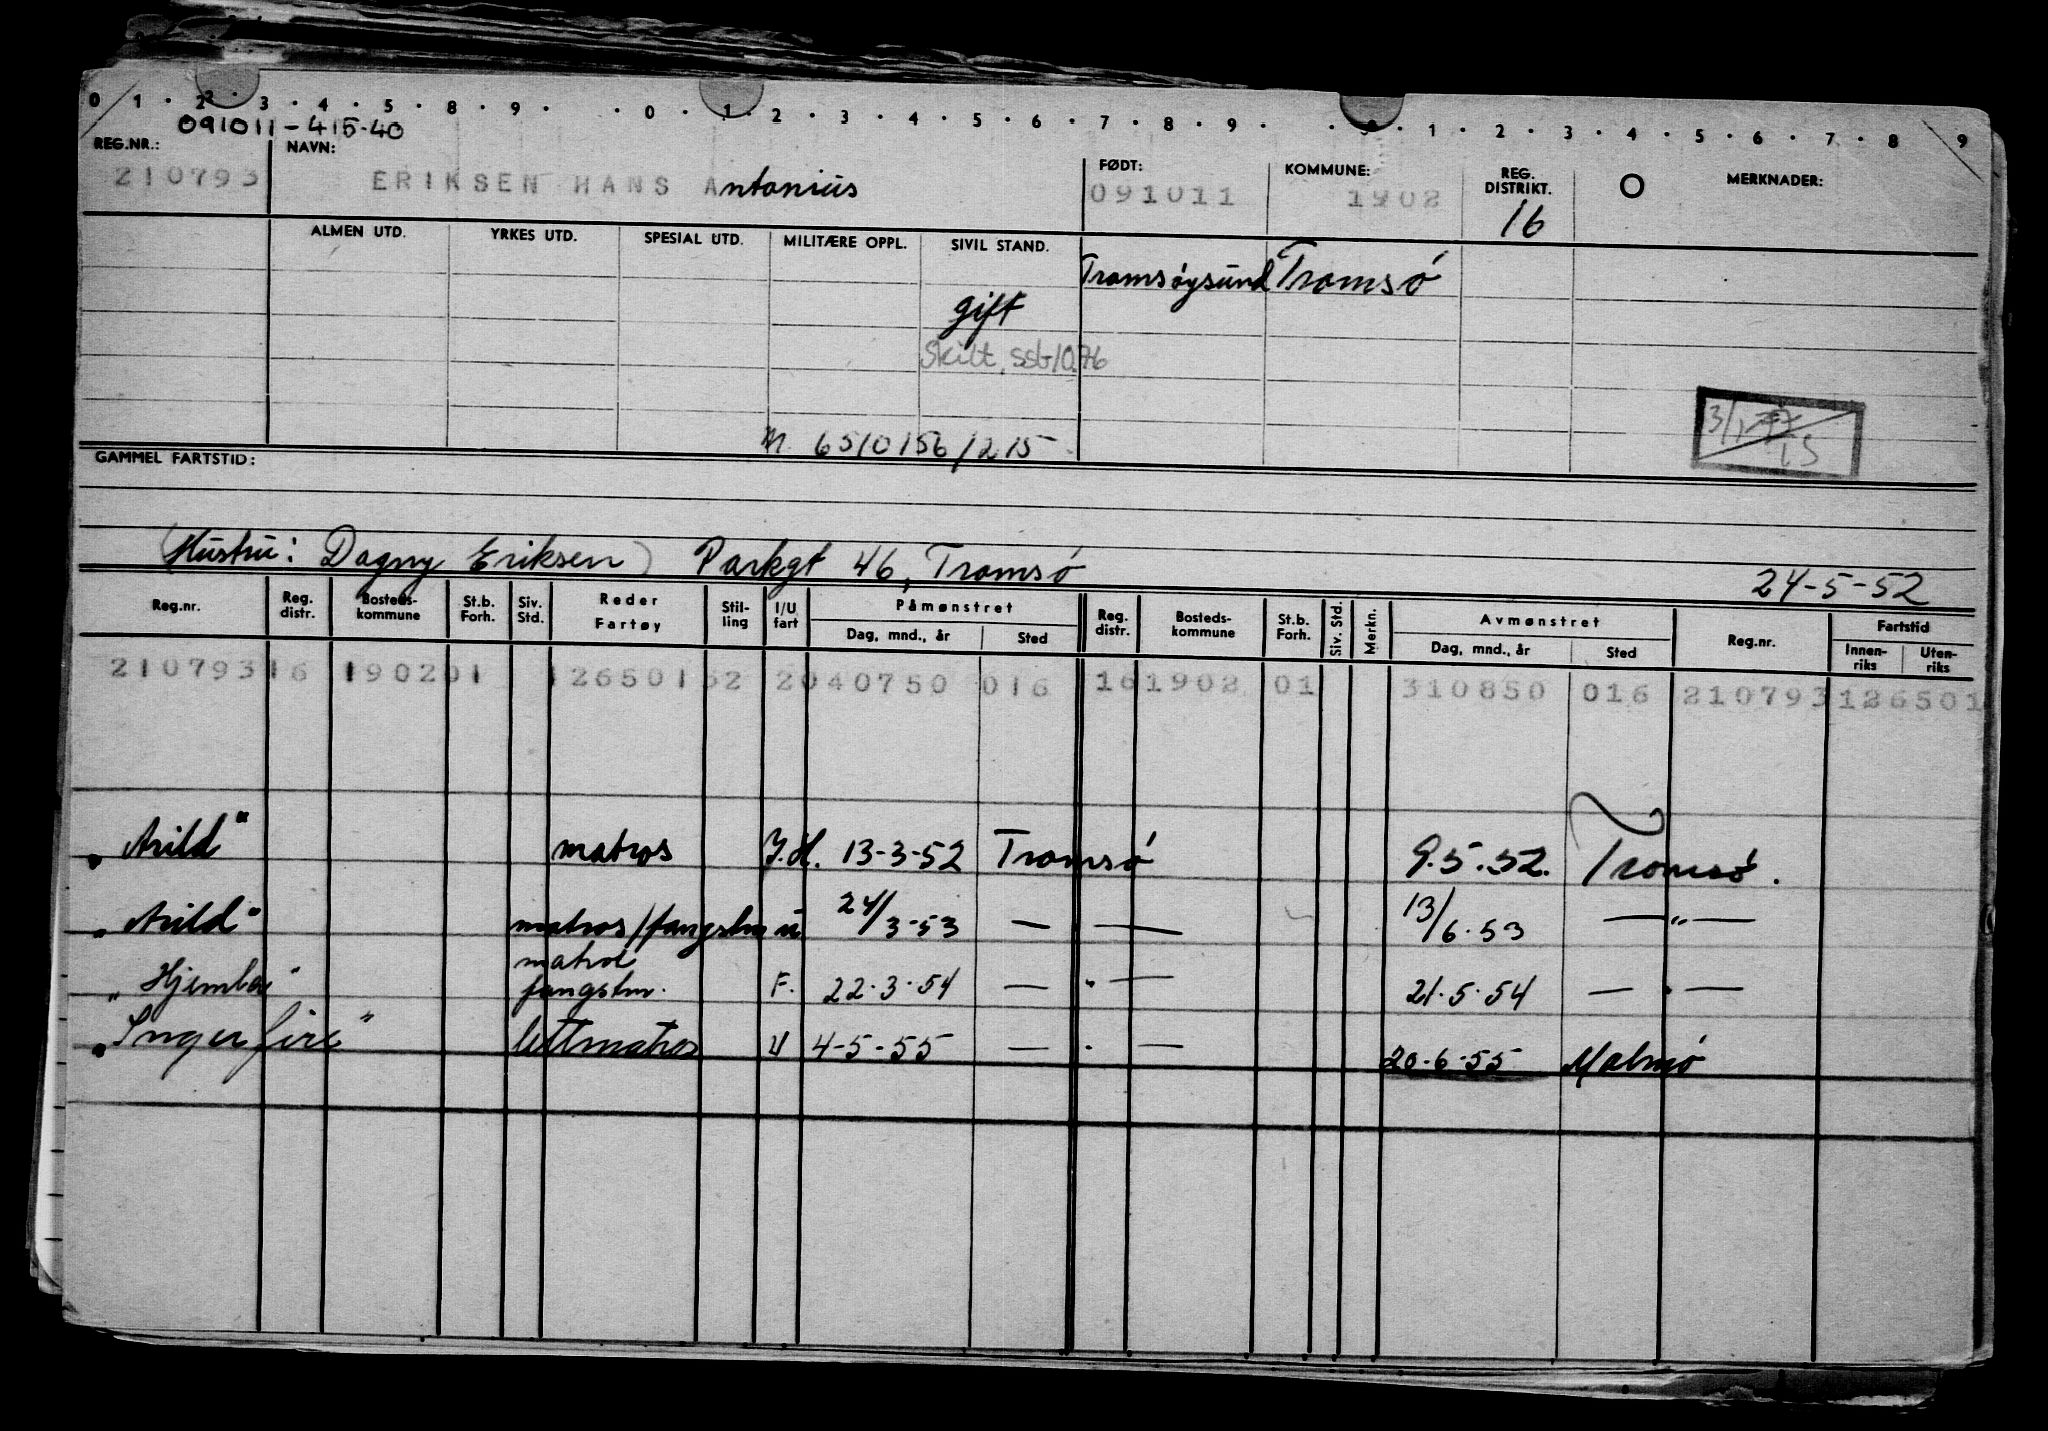 0 1 . 2 . 3 . 4 . 5 . 8 . 9 . . 0 . 1 . 2 . 3 . 4 . 5 . 6 . 7 . 8 . 9 . . 1 . 2 . 3 . 4 . 5 . 6 . 7 . 8 9
091011-415-40
REG.NR.: NAVN: FØDT: KOMMUNE: REG. DISTRIKT. O MERKNADER:
210793 ERIKSEN HANS Antonius 091011 1902 16
ALMEN UTD. YRKES UTD. SPESIAL UTD. MILITÆRE OPPL. SIVIL STAND.
Tromsøysund Tromsø
gift
Skilt, ssb 10.76
13/1-77
TS
M. 6510156/215
GAMMEL FARTSTID:
(Hustru: Dagny Eriksen) Parkgt 46, Tromsø
24-5-52
Reg.nr. Reg. distr. Bosteds-kommune St.b. Forh. Siv. Std. Reder Fartøy Stil-ling I/U fart Påmønstret Reg. distr. Bosteds-kommune St.b. Forh. Siv. Std. Merkn. Avmønstret Reg.nr. Fartstid
Dag, mnd., år Sted Dag, mnd., år Sted Innen-riks Uten-riks
210793 16 1902 01 126501 52 2 040750 016 16 1902 01 310850 016 210793 126501
„Arild" matros I.H. 13-3-52 Tromsø 9.5.52. Tromsø.
„Arild" matros/fangstm u 24/3-53 — — 13/6.53 —"—
matros
„Hjemba" fangstm. F. 22.3.54 —"— 21.5.54 —"—
„Ingerfire" lettmatros U 4-5-55 —"— 20.6.55 Malmö